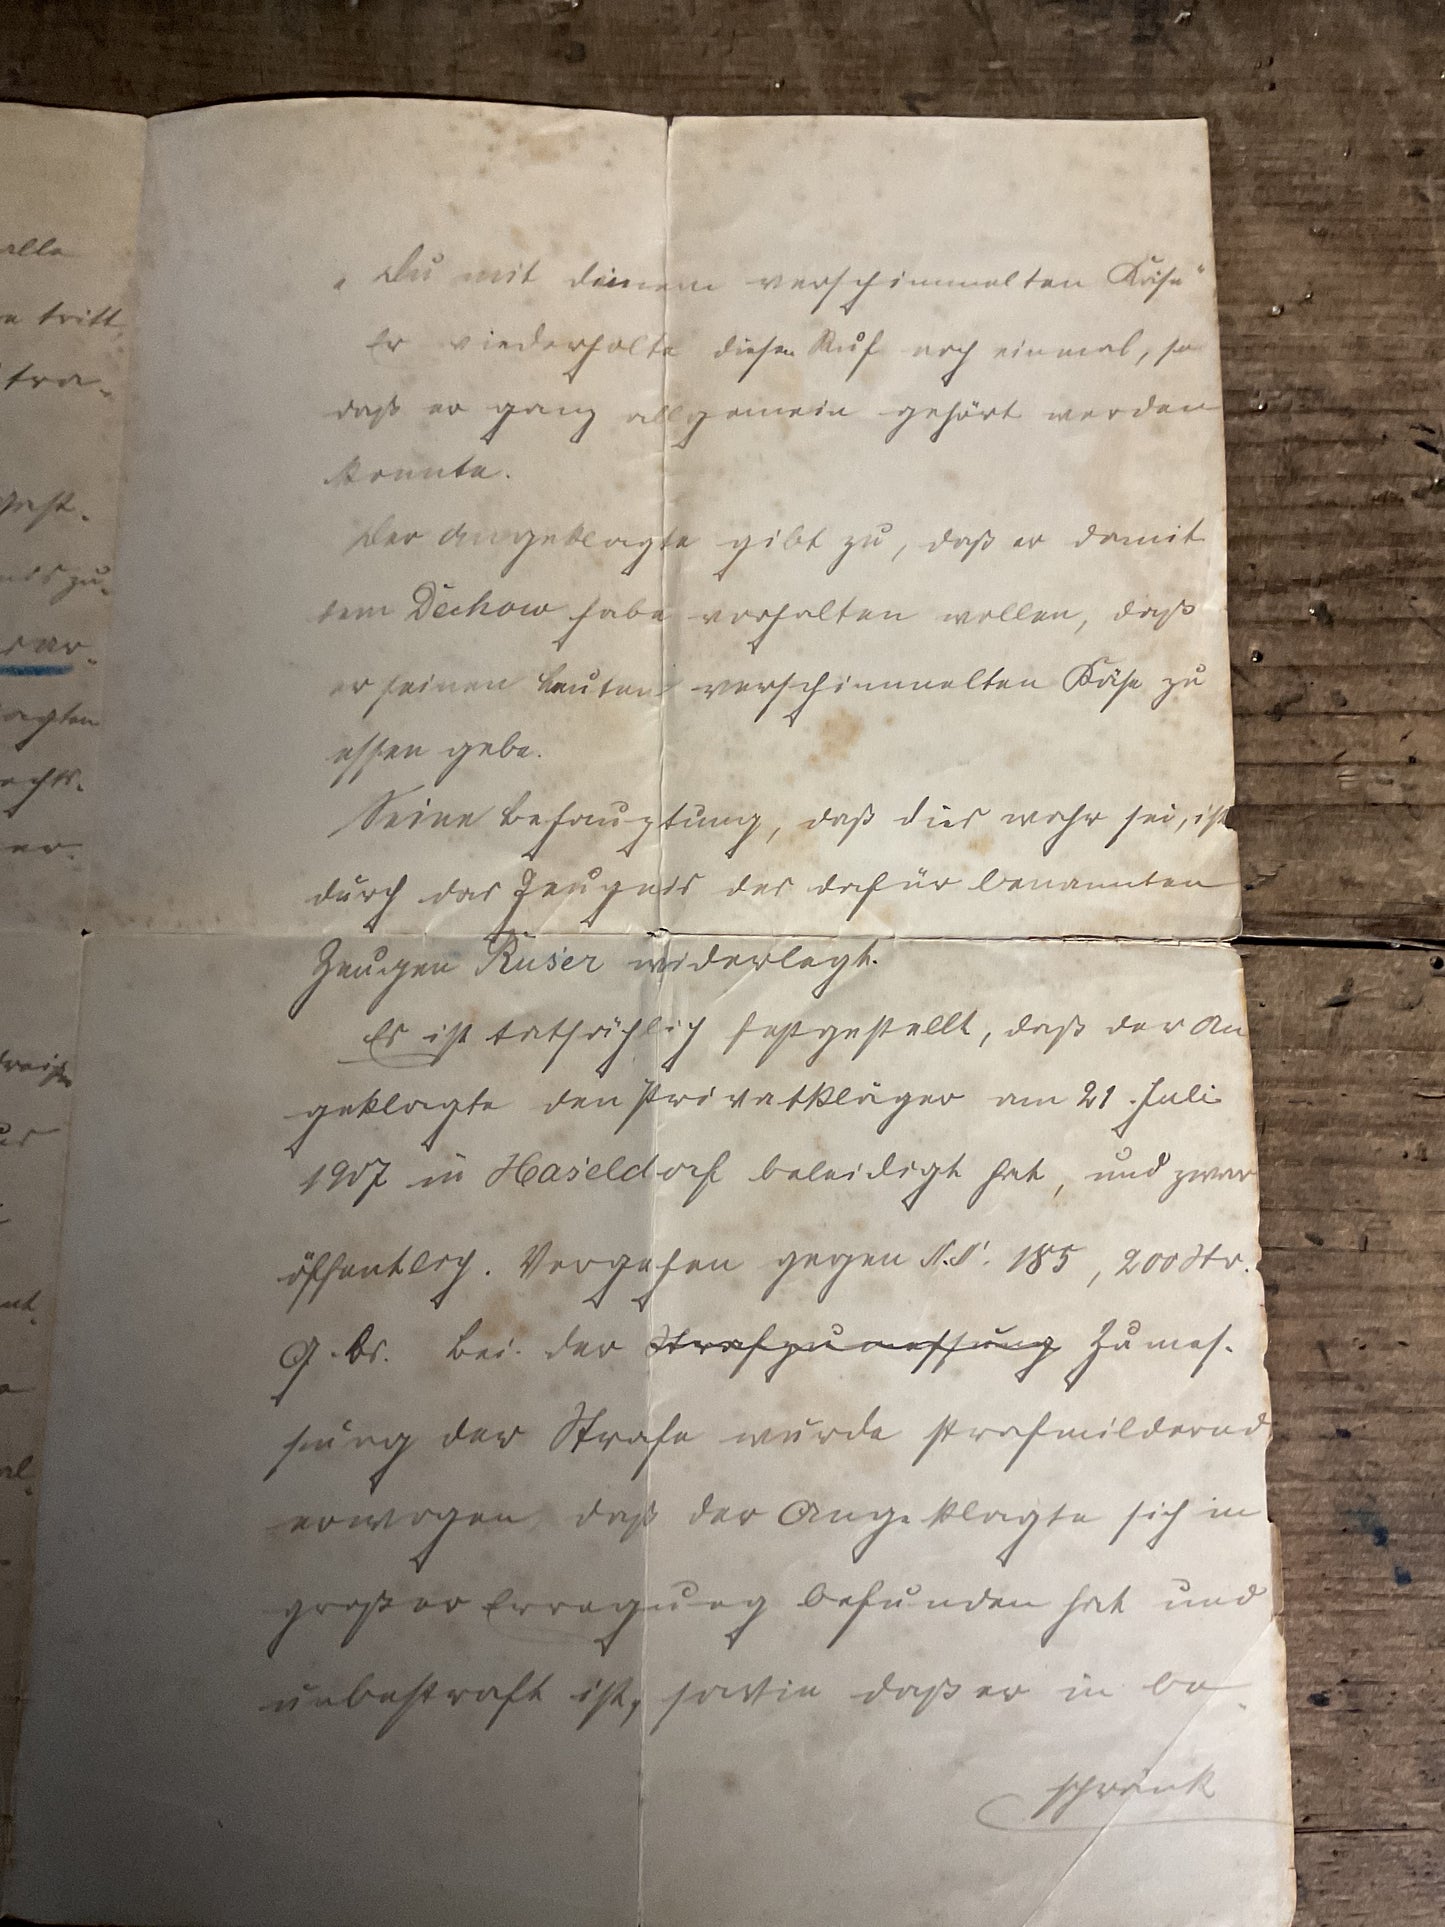 alle
tritt
tra-
zu-
agten
echts-
er-
„Du mit deinem verschimmelten Käse“
Er wiederholte diesen Ruf noch einmal, so
daß er ganz allgemein gehört werden
konnte.
Der Angeklagte gibt zu, daß er damit
dem Dechow habe vorhalten wollen, daß
er seinen Leuten verschimmelten Käse zu
essen gebe.
Seine Behauptung, daß dies wahr sei, ist
durch das Zeugnis des dafür benannten
Zeugen Rüser widerlegt.
Es ist tatsächlich festgestellt, daß der An
geklagte den Privatkläger am 21. Juli
1907 in Haseldorf beleidigt hat, und zwar
öffentlich. Vergehen gegen §.§. 185, 200 Str.
G. Bs. Bei der Strafzumessung Zumes-
sung der Strafe wurde strafmildernd
erwogen, daß der Angeklagte sich in
großer Erregung befunden hat und
unbestraft ist, sowie daß er in be-
schränk